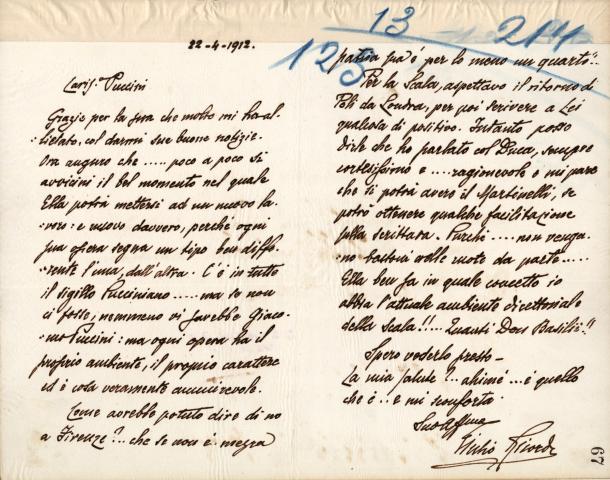 22-4-1912.
Cariss. Puccini
Grazie per la sua che molto mi ha al-
lietato, col darmi sue buone notizie.
Ora auguro che ..... poco a poco si
avvicini il bel momento nel quale
Ella potrà mettersi ad un nuovo la-
voro: e nuovo davvero, perchè ogni
sua opera segna un tipo ben diffe-
rente l'una, dall'altra. C'è in tutto
il sigillo Pucciniano ..... ma se non
ci fosse, nemmeno vi sarebbe Giaco-
mo Puccini: ma ogni opera ha il
proprio ambiente, il proprio carattere
ed è cosa veramente ammirevole.
Come avrebbe potuto dire di no
a Firenze?... che se non è
13
214
123
patria sua è per lo meno un quarto!..
Per la Scala, aspettavo il ritorno di
Poli da Londra, per poi scrivere a Lei
qualcosa di positivo. Intanto posso
dirle che ho parlato col Duca, sempre
cortesissimo e .... ragionevole e mi pare
che si potrà avere il Martinelli, se
potrò ottenere qualche facilitazione
sulla scrittura. Purchè .... non venga-
no bastoni nelle ruote da parte.....
Ella ben sa in quale concetto io
abbia l'attuale ambiente direttoriale
della Scala!!!.. Quanti Don Basilii!!
Spero vederlo presto-
La mia salute?... ahimè ... è quello
che è .. e mi
Suo affmo
Giulio Ricordi
67